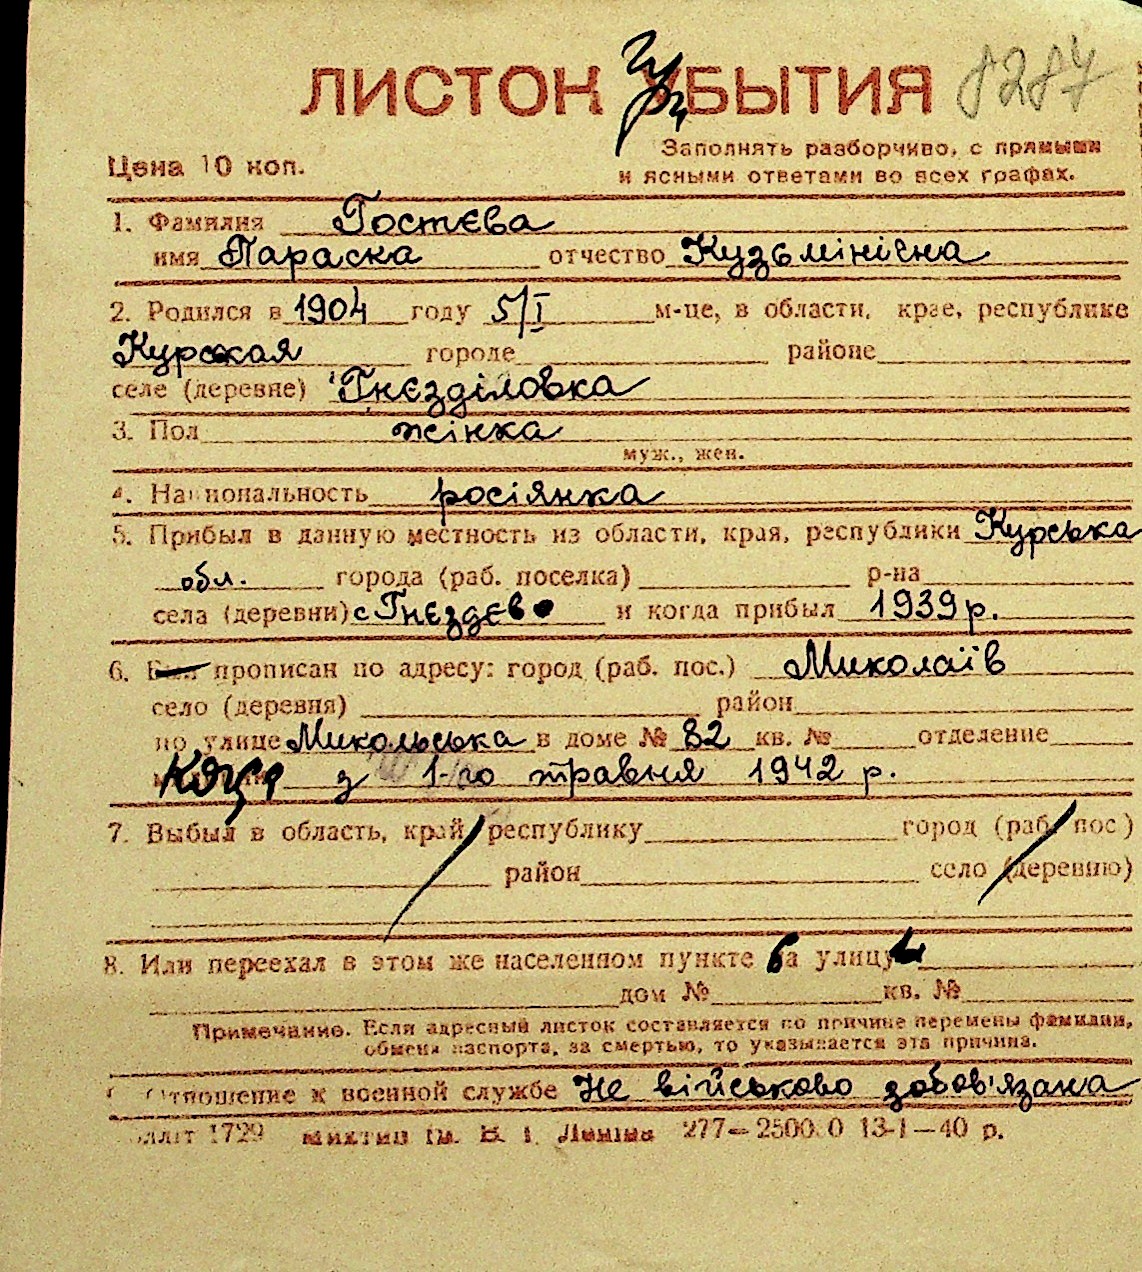 ЛИСТОК УБЫТИЯ 8287
Цена 10 коп.
Заполнять разборчиво, с прямыми
и ясными ответами во всех графах.
1. Фамилия Гостєва
имя Параска отчество Кузьмінічна
2. Родился в 1904 году 5/I м-це, в области, крае, республике
Курская городе районе
селе (деревне) Гнєзділовка
3. Пол жінка
муж., жен.
4. Национальность росіянка
5. Прибыл в данную местность из области, края, республики Курська
обл. города (раб. поселка) р-на
села (деревни) с Гнєздєво и когда прибыл 1939 р.
6. Был прописан по адресу: город (раб. пос.) Миколаїв
село (деревня) район
по улице Микольська в доме № 82 кв. № отделение
з 1-го травня 1942 р.
7. Выбыл в область, край, республику город (раб. пос)
район село (деревню)
8. Или переехал в этом же населенном пункте на улицу
дом № кв. №
Примечание. Если адресный листок составляется по причине перемены фамилии,
обмена паспорта, за смертью, то указывается эта причина.
Отношение к военной службе Не військово зобов'язана
1729 277— 2500.0 13-I—40 р.